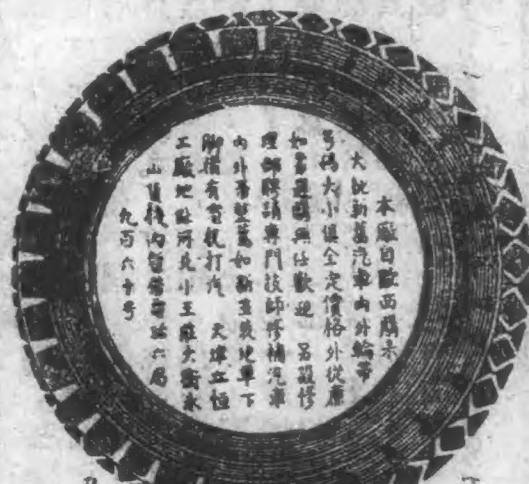 本廠自歐西購來
大批新舊汽車內外輪帶
号碼大小俱全定價格外從廉
如蒙惠顧無任歡迎 另設修
理部聘請專門技師修補汽車
內外帶整舊如新並裝地車下
脚備有電机打汽 天津立恒
工廠地點河北小王莊大街永
山貨棧內 電話 六局
九百六十号